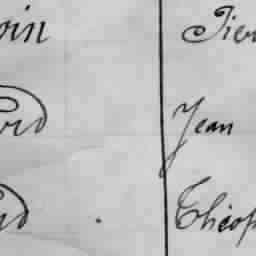 oin Pier
ord Jean
rd Théop